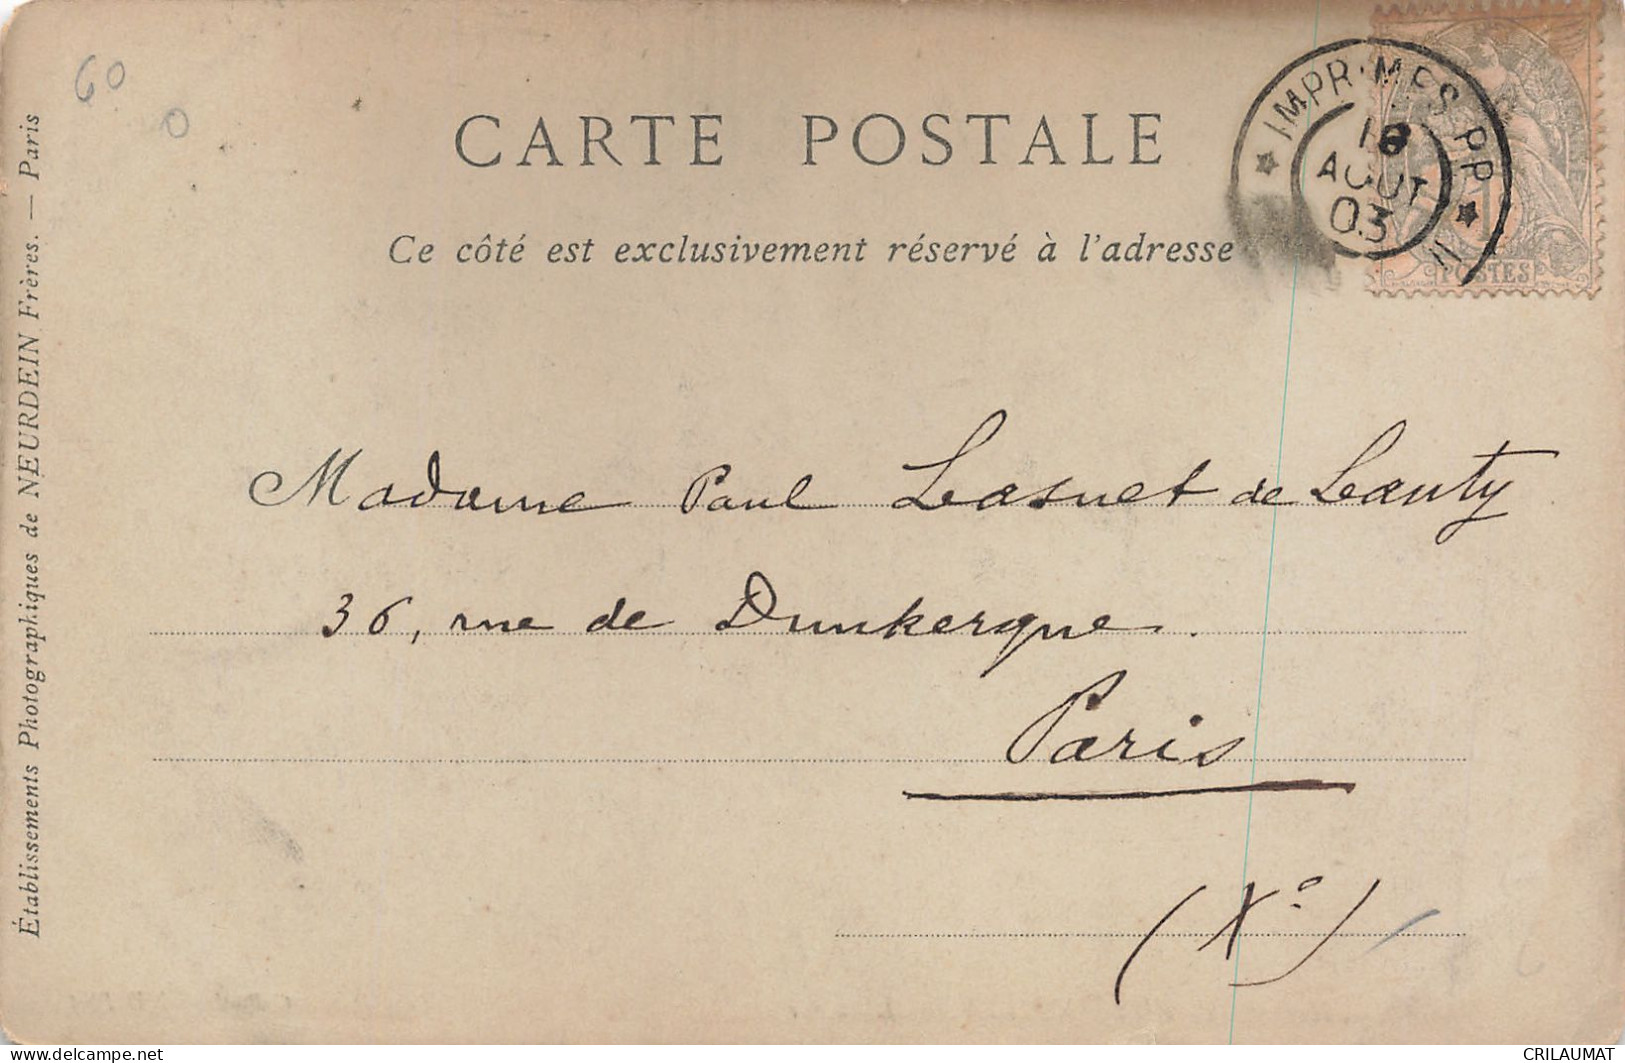 60
0
CARTE POSTALE
Ce côté est exclusivement réservé à l'adresse
IMPRIMES PP 11
18
AOUT
03
POSTES
Établissements Photographiques de NEURDEIN Frères. — Paris
Madame Paul Lasnet de Lanty
36, rue de Dunkerque.
Paris
(Xe)
www.delcampe.net
CRILAUMAT